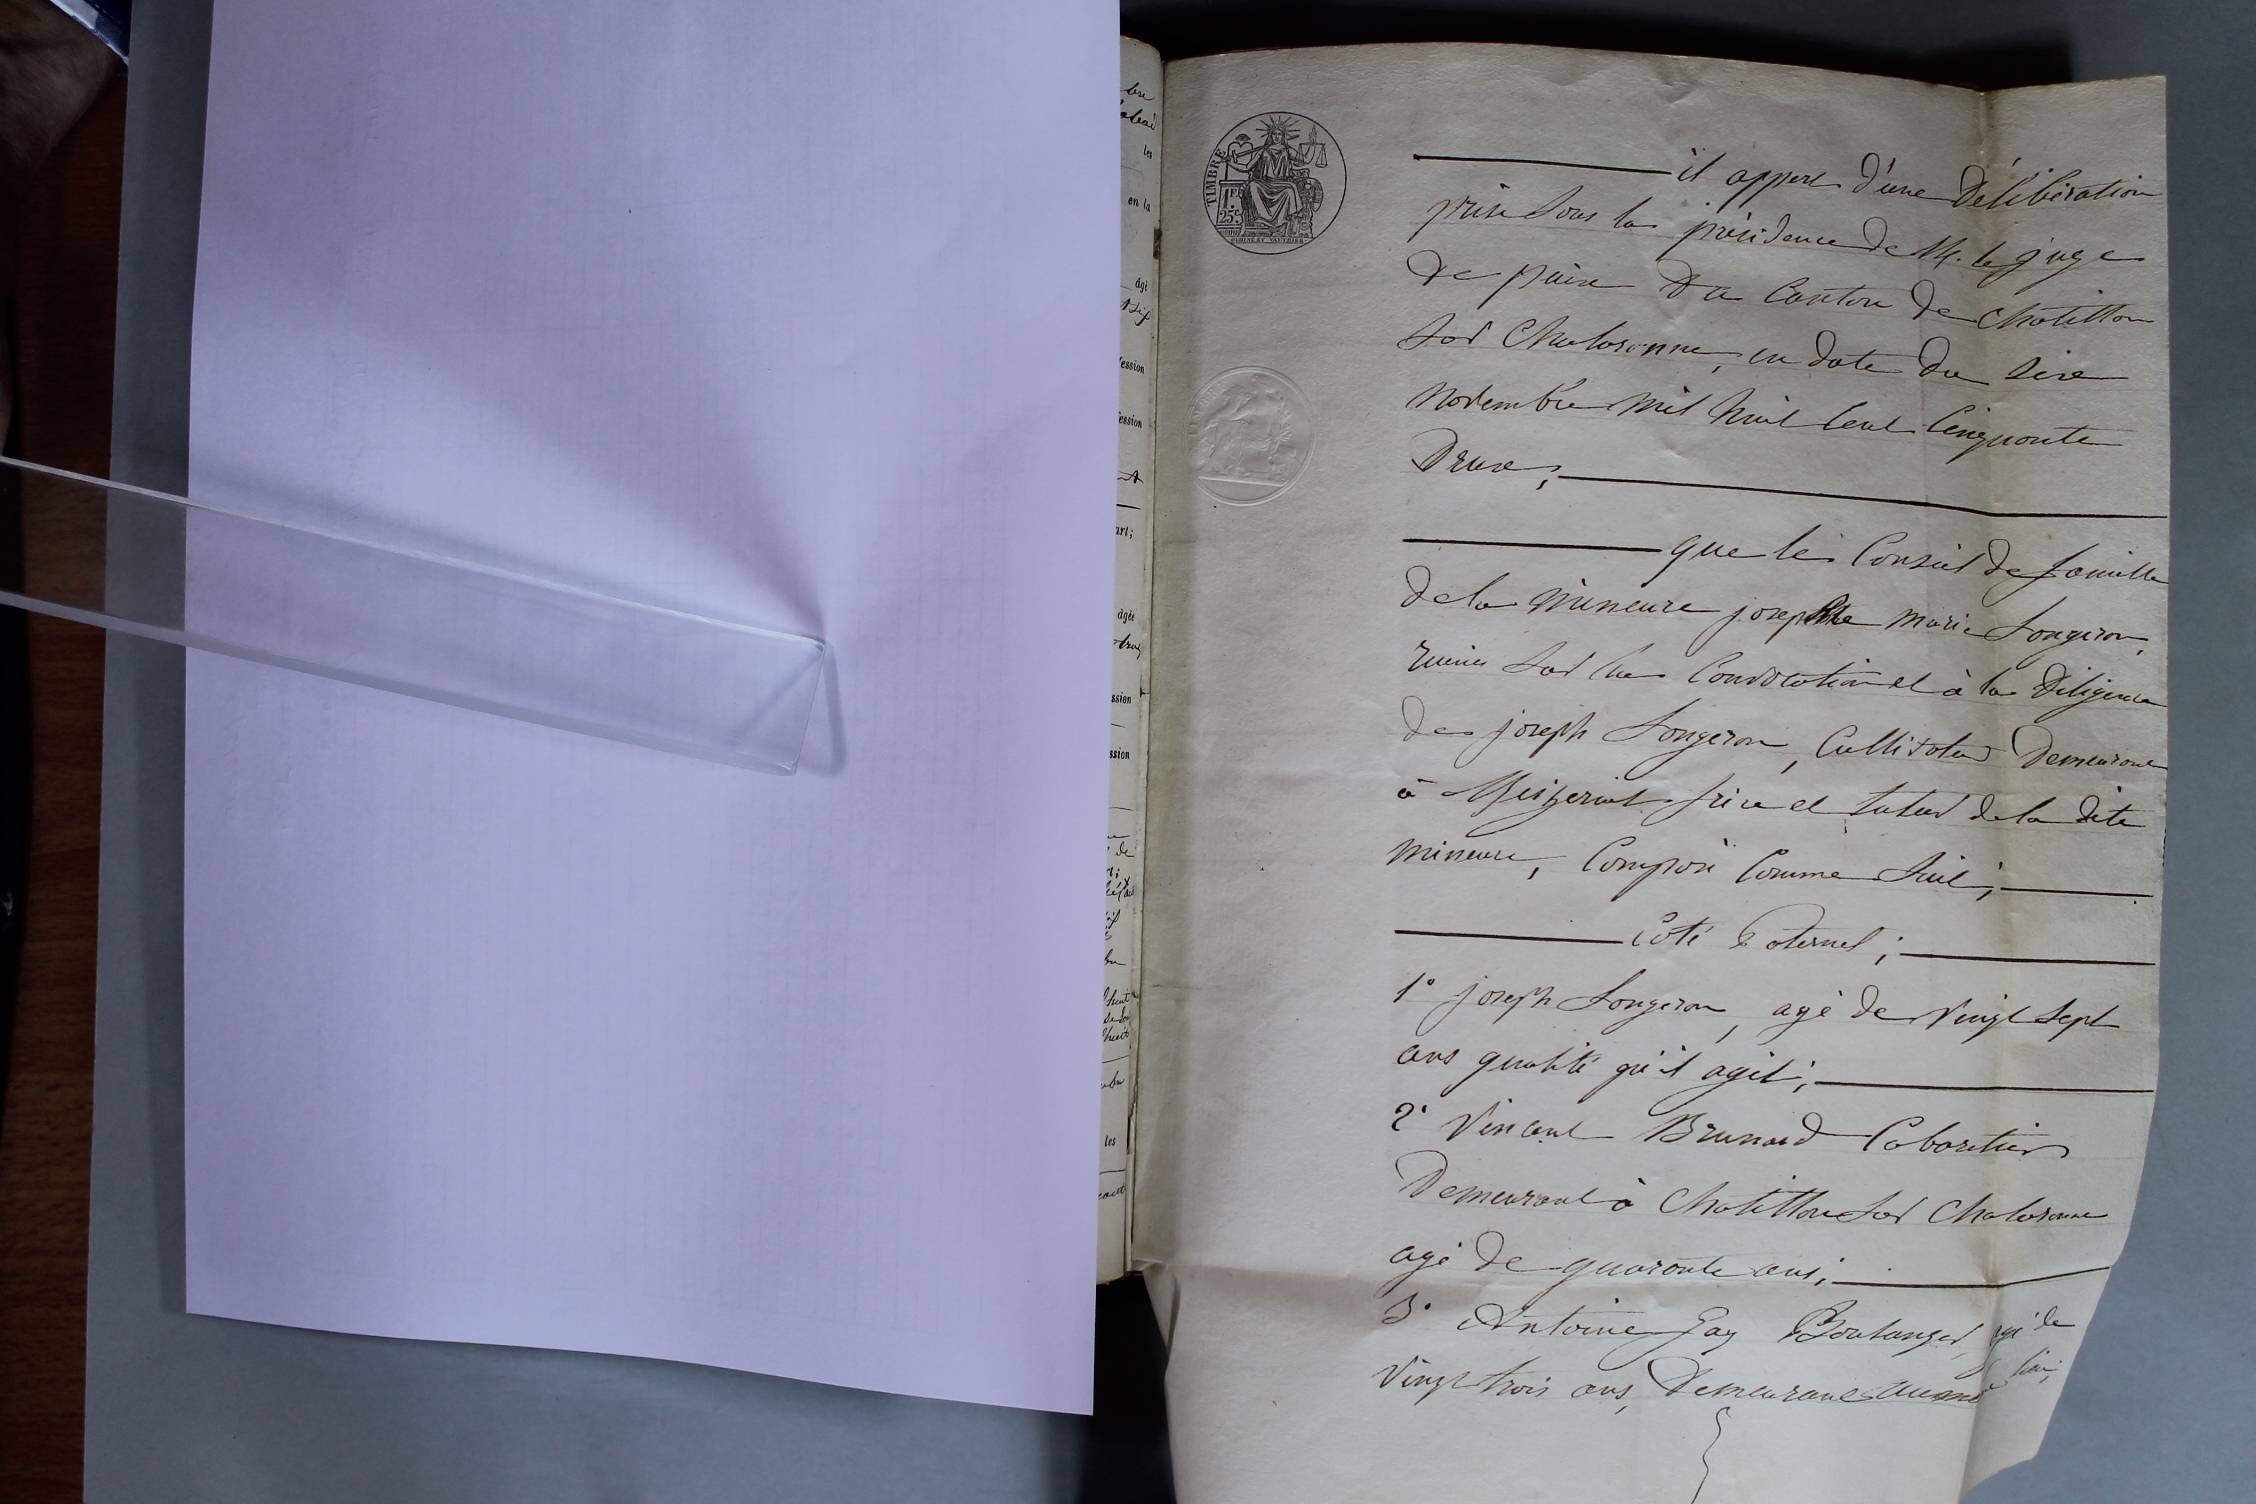 TIMBRE
1 F.
25 c.
il appert d'une délibération
prise sous la présidence de M. le juge
de paix du Canton de Chatillon
sur Chalaronne, en date du seize
novembre mil huit cent cinquante
deux;
que le Conseil de famille
de la mineure josephte marie Longeron,
réuni sur la Convocation et à la diligence
de joseph Longeron, Cultivateur demeurant
à Mézériat frère et tuteur de la dite
mineure, Composé Comme suit;
Coté Paternel;
1° joseph Longeron, agé de vingt sept
ans qualité qu'il agit;
2° Vincent Brunard Cabaretier
demeurant à Chatillon sur Chalaronne
agé de quarante ans;
3° Antoine Gay Boulanger, agé de
vingt trois ans, demeurant au même lieu;
bre
les
en la
âgé
fession
fession
art;
âgée
ssion
ssion
de
les